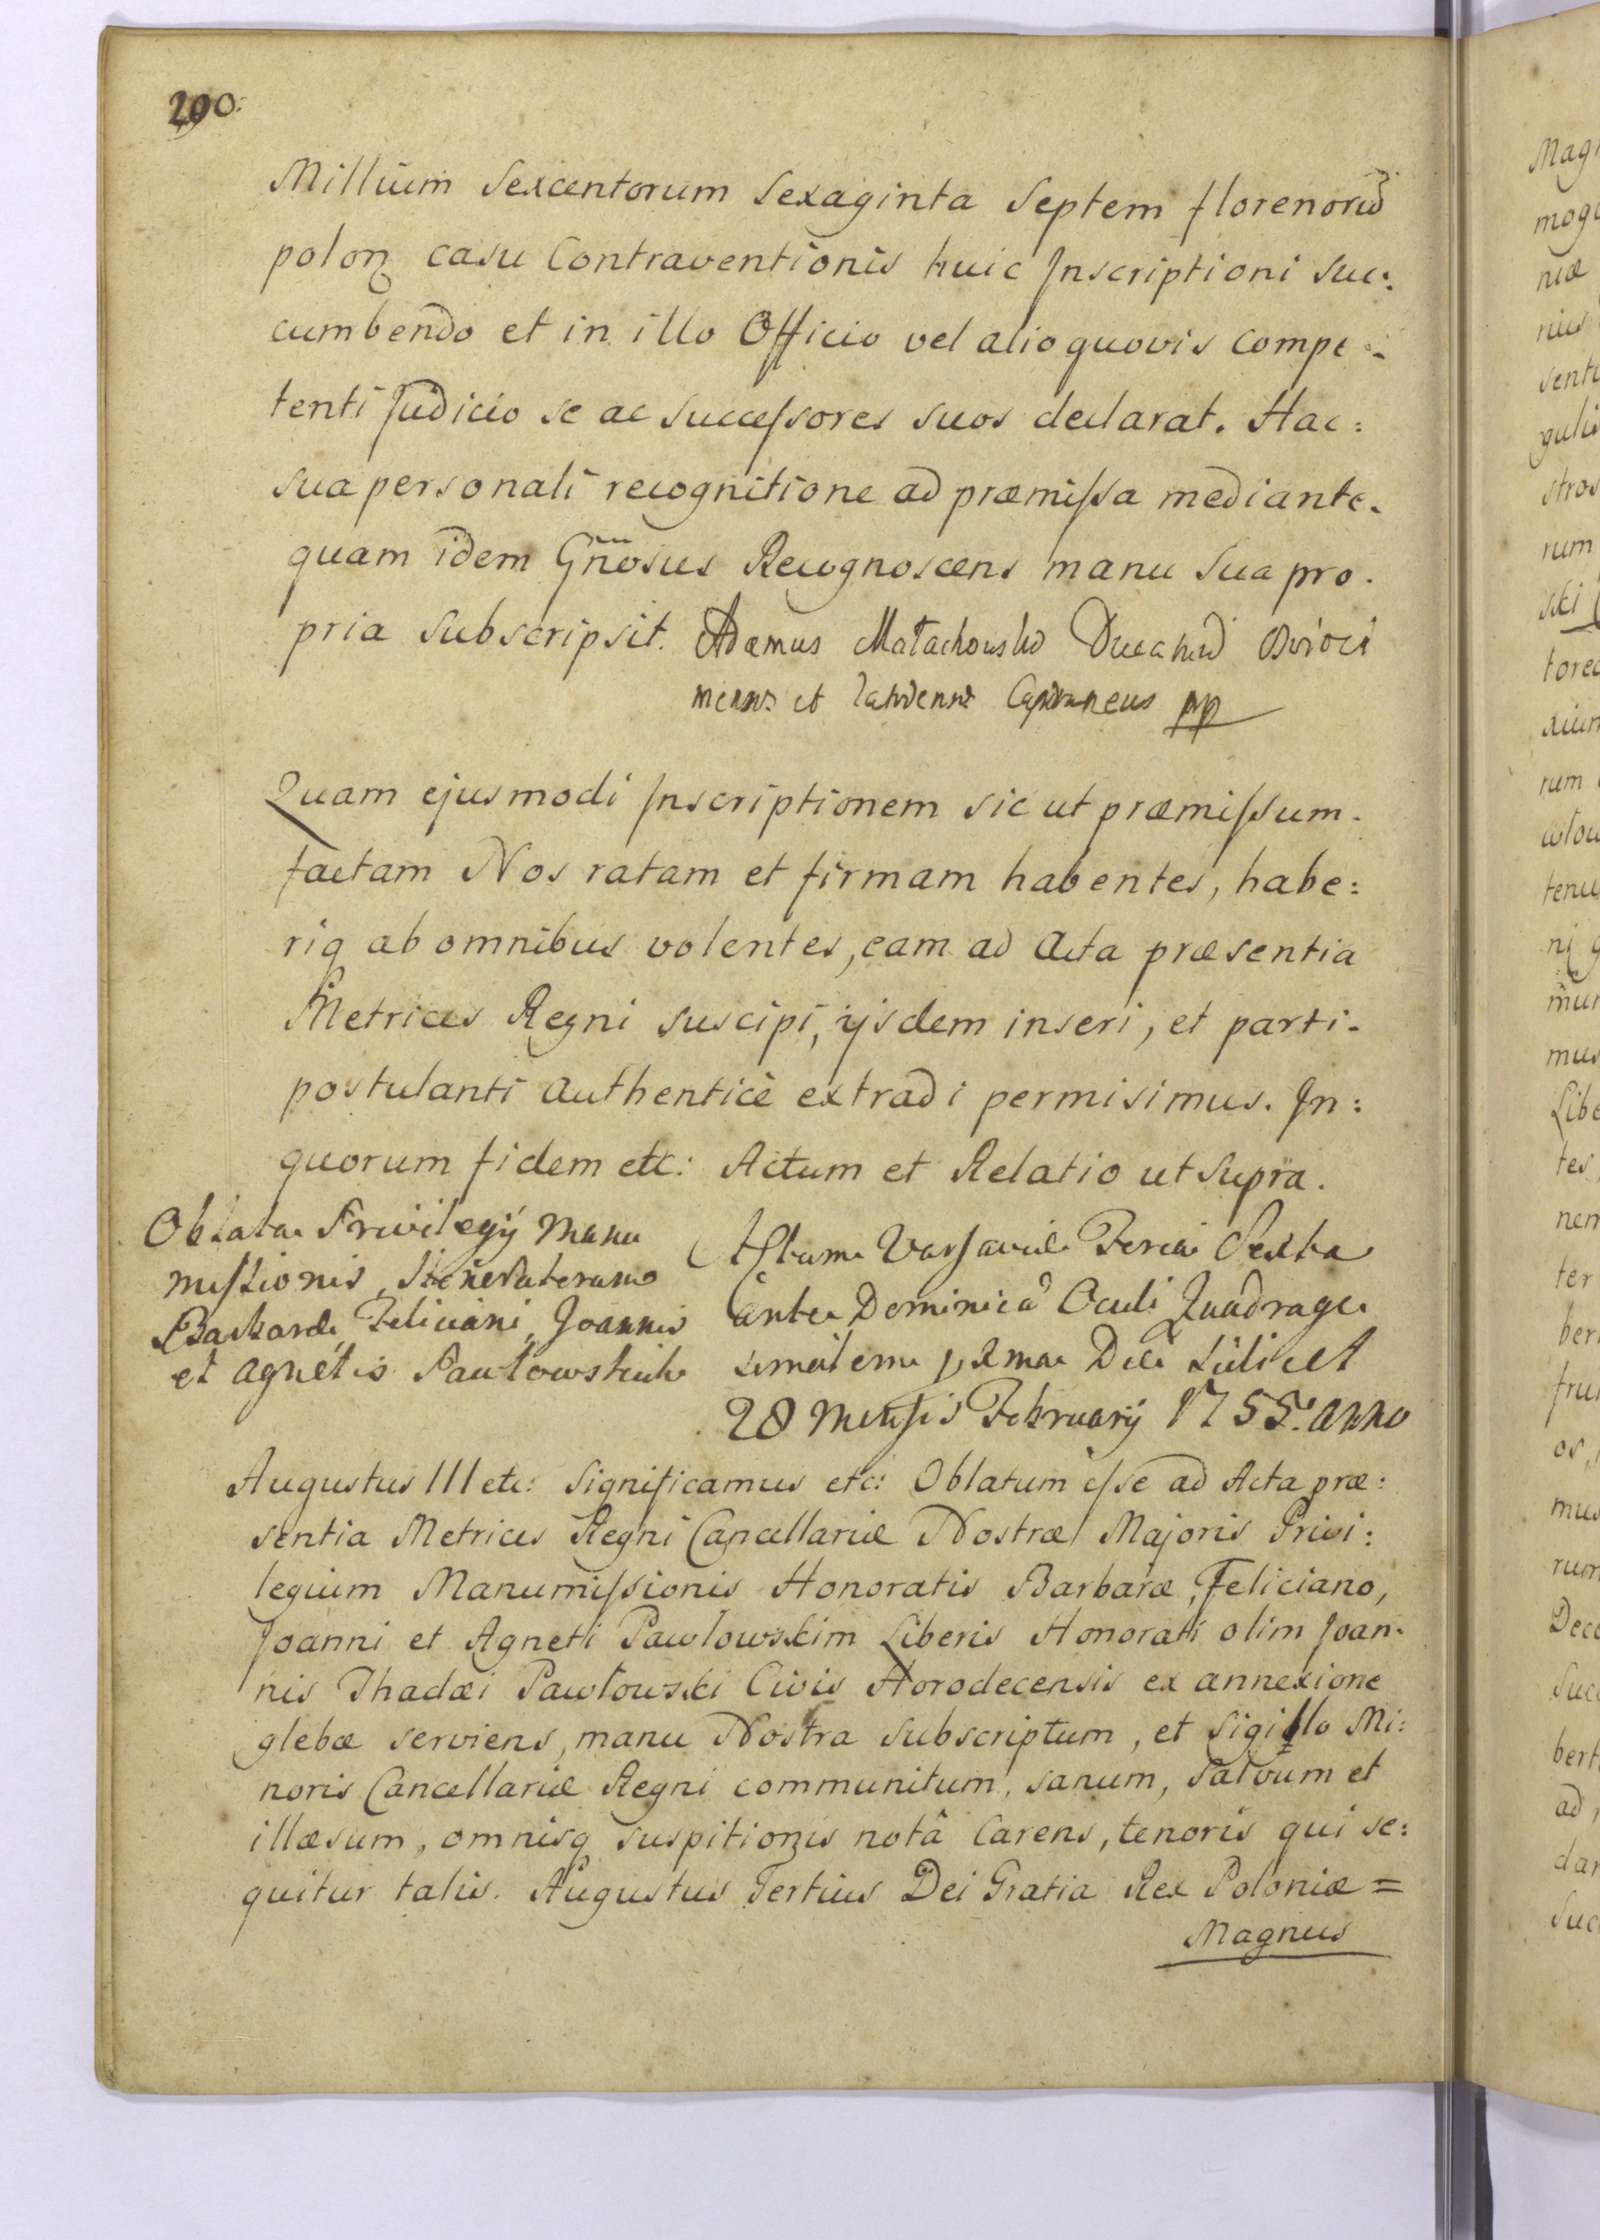 290.
Millium Sexcentorum Sexaginta Septem florenorū
polonz casu Contraventionis huic Inscriptioni suc:
cumbendo et in illo Officio vel alio quovis compe-
tenti Judicio se ac Successores suos declarat. Hac:
sua personali recognitione ad præmissa mediante.
quam idem Gñosus Recognoscens manu sua pro.
pria subscripsit. Adamus Małachowski
et Capitaneus mp
Quam ejusmodi Inscriptionem sic ut præmissum.
factam Nos ratam et firmam habentes, habe:
riq ab omnibus volentes, eam ad Acta præsentia
Metrices Regni suscipi, ijsdem inseri, et parti-
postulanti authenticè extradi permisimus. In:
quorum fidem etc: Actum et Relatio ut supra.
Oblata Privilegÿ Manu
missionis,
Barbaræ, Feliciani, Joannis
et Agnetis Pawłowskich
Actum Varsaviæ Feria Sexta
ante Dominicā Oculi Quadrage
simalem pxma Die scilicet
28 Mensis Februarÿ 1755. anno
Augustus III etc: Significamus etc: Oblatum esse ad Acta præ:
sentia Metrices Regni Cancellariæ Nostræ Majoris Privi:
legium Manumissionis Honoratis Barbaræ, Feliciano,
Joanni et Agneti Pawłowskim Liberis Honorati olim Joan-
nis Thadæi Pawłowski Civis Horodecensis ex annexione
glebæ serviens, manu Nostra subscriptum, et Sigillo Mi:
noris Cancellariæ Regni communitum, sanum, salvum et
illæsum, omnisq suspitionis notâ carens, tenoris qui se:
quitur talis. Augustus Tertius Dei Gratia Rex Poloniæ =
Magnus